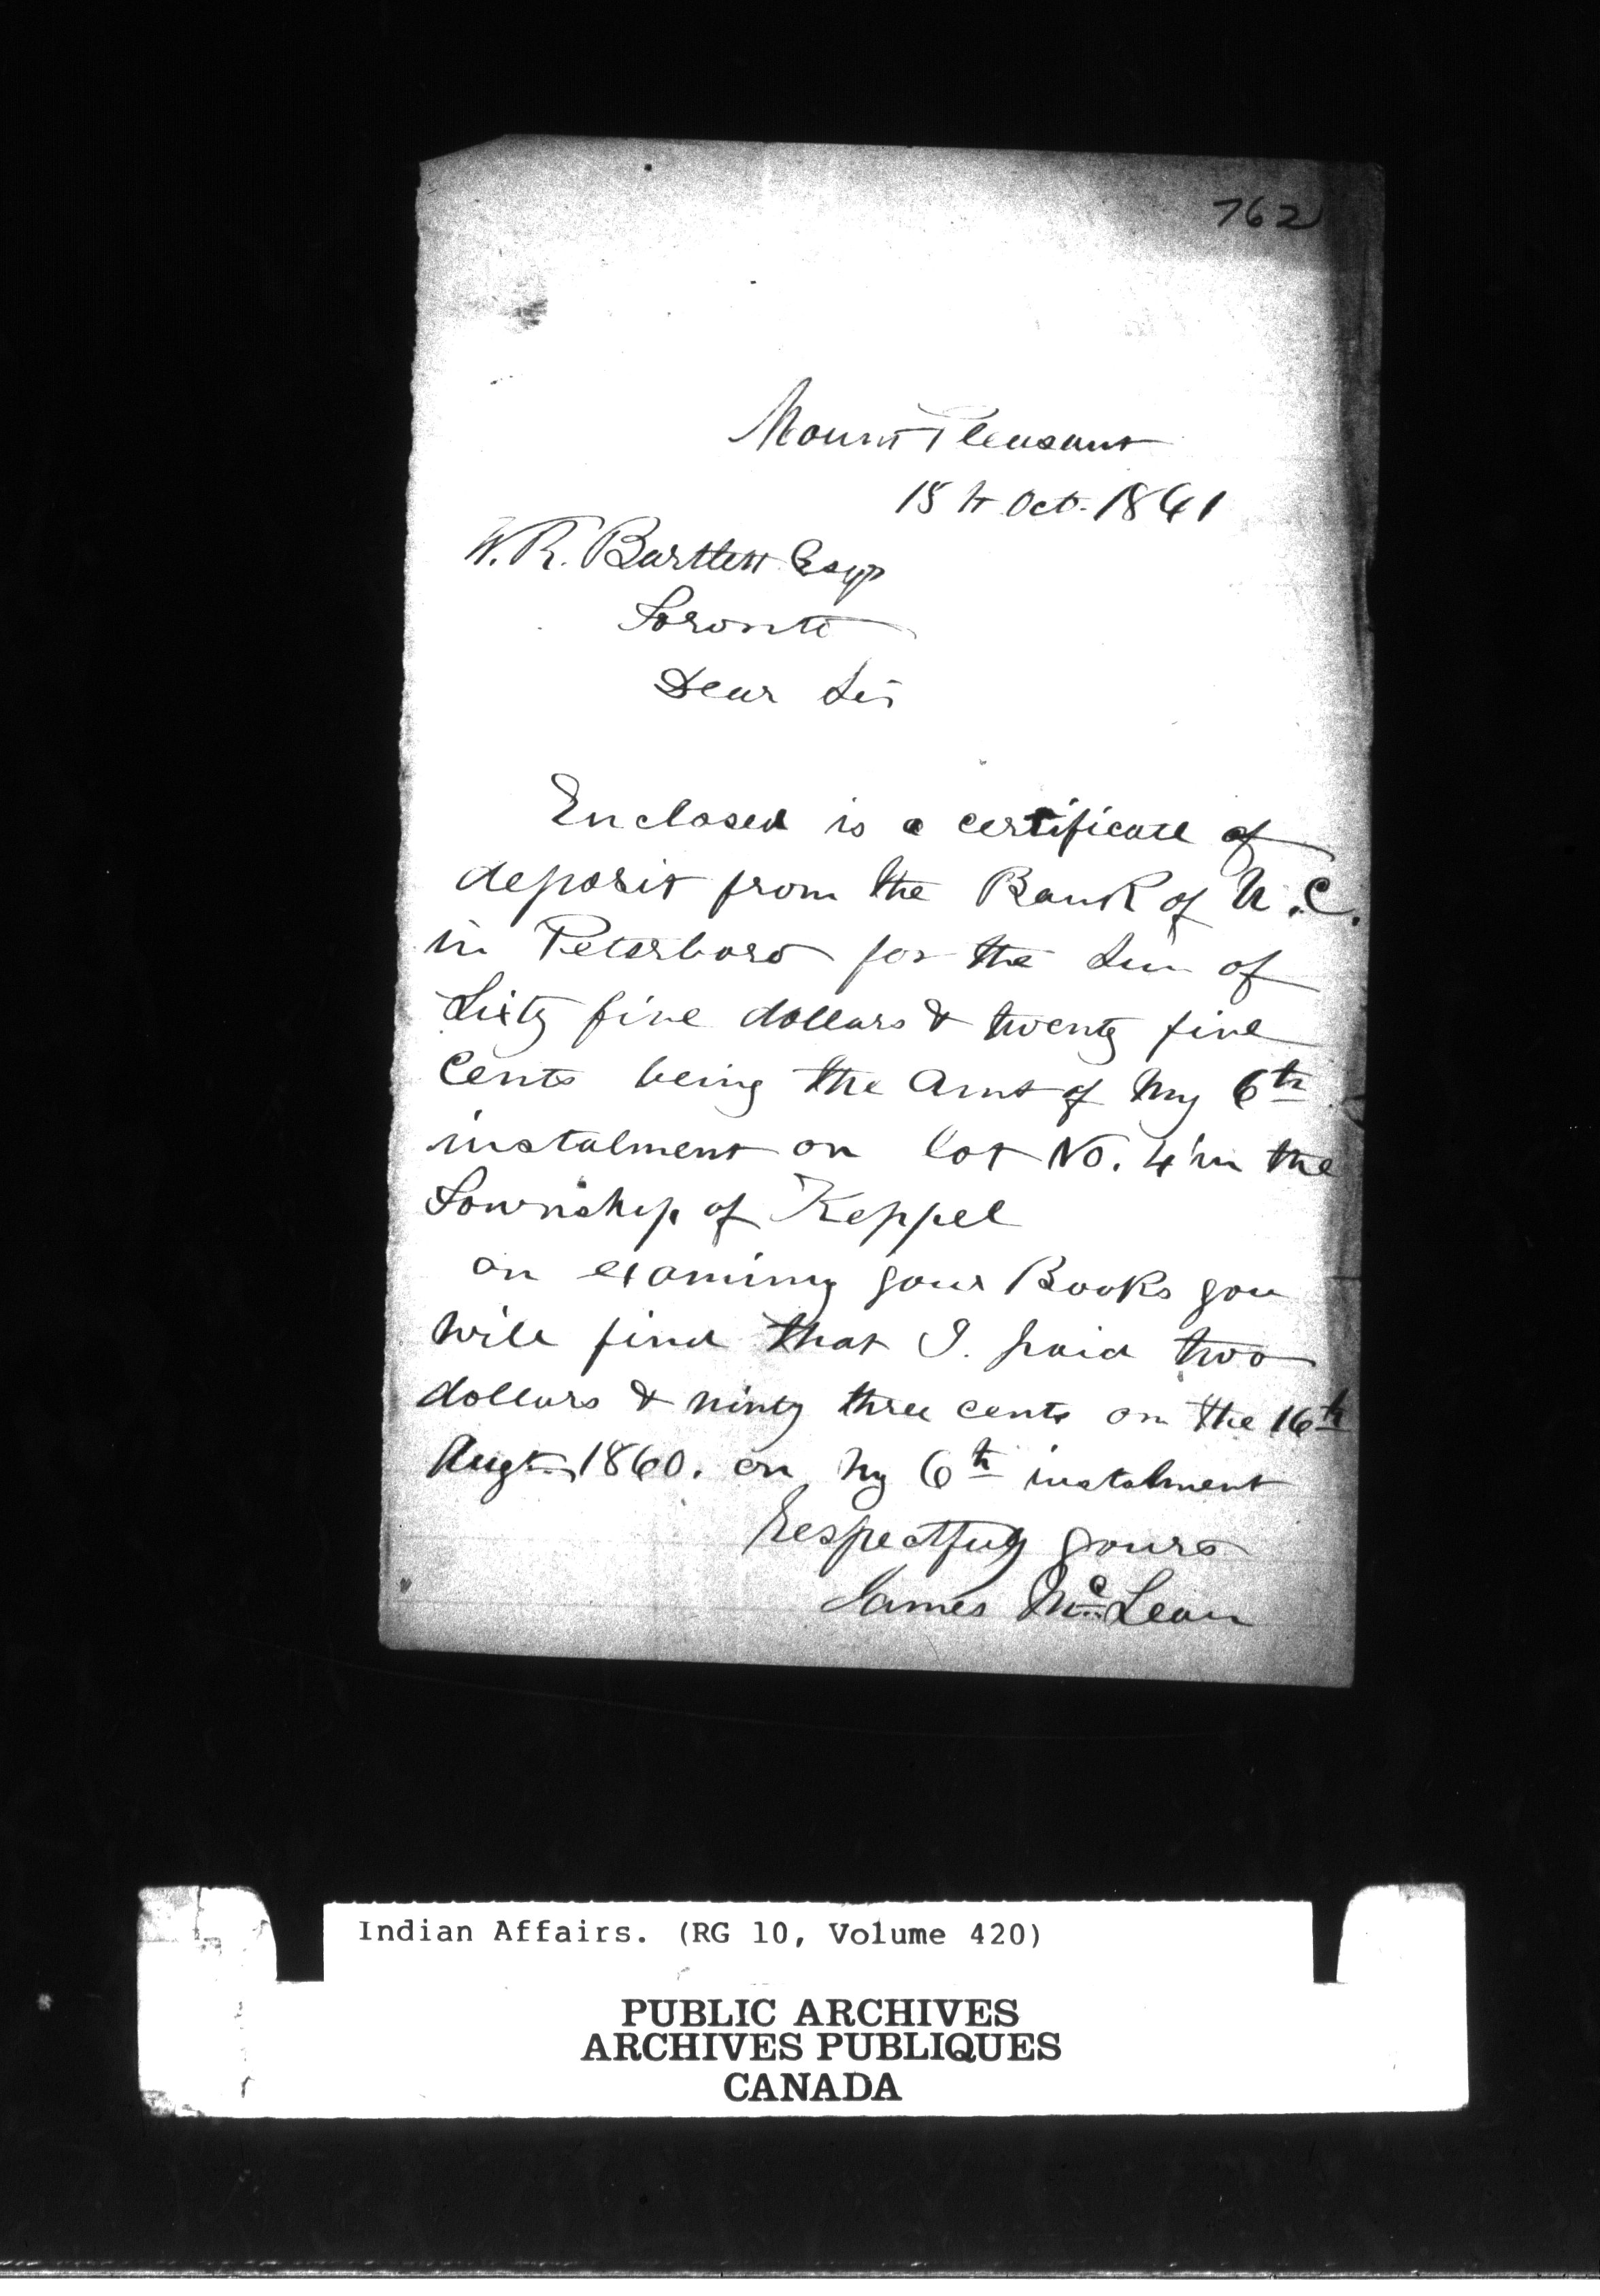 762
Mount Pleasant
15th Oct. 1861
W. R. Bartlett Esqr
Toronto
Dear Sir
Enclosed is a certificate of
deposit from the Bank of U.C.
in Peterboro for the Sum of
Sixty five dollars & twenty five
Cents being the Amt of My 6th
instalment on lot No. 4 in the
Township of Keppel
on examining your Books you
will find that I. paid two
dollars & ninty three cents on the 16th
Augt. 1860. on My 6th instalment
Respectfuly yours
James McLean
Indian Affairs. (RG 10, Volume 420)
PUBLIC ARCHIVES
ARCHIVES PUBLIQUES
CANADA